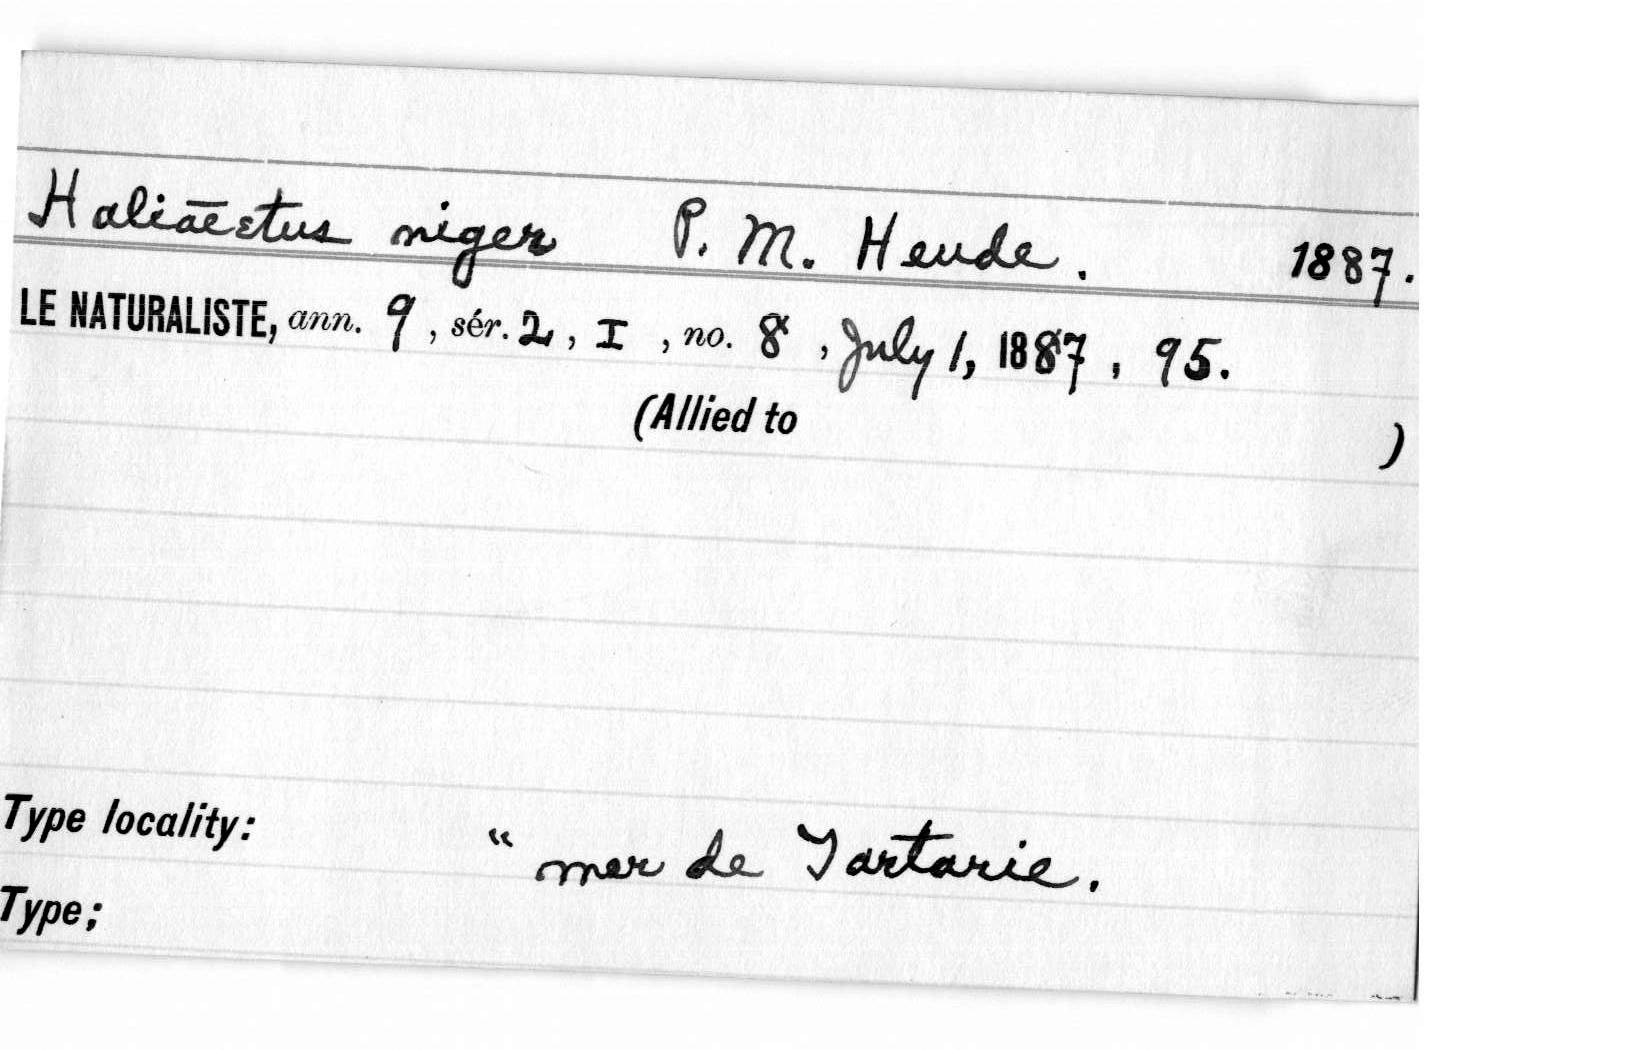 Haliāeetus niger P. M. Heude. 1887.
LE NATURALISTE, ann. 9, sér. 2, I, no. 8, July 1, 1887, 95.
(Allied to )
Type locality: “ mer de Tartarie.
Type;